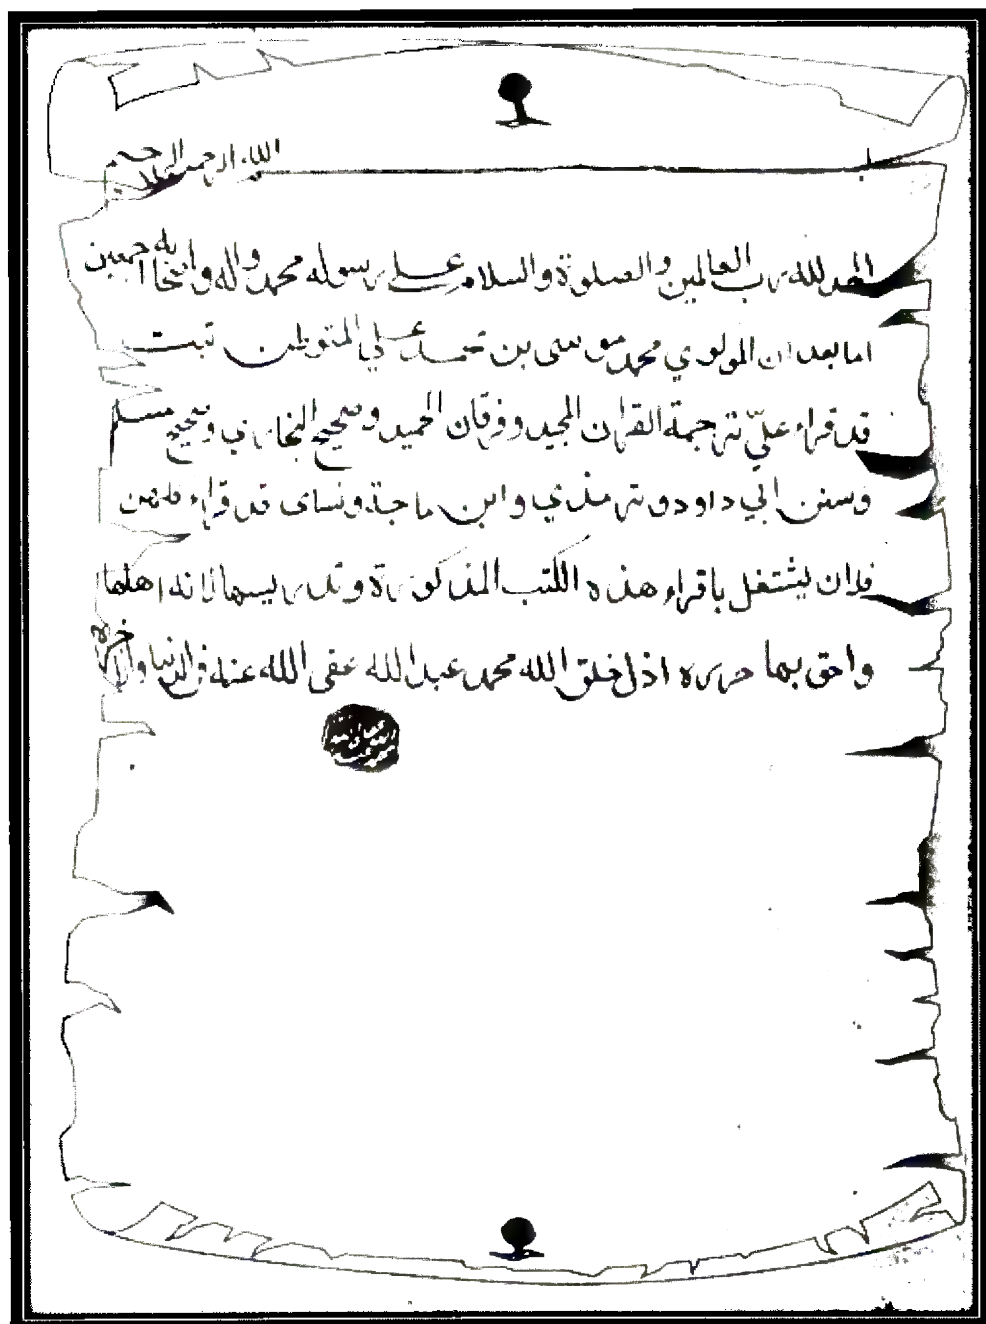 بسم الله الرحمن الرحيم
الحمد لله رب العالمين والصلوة والسلام علے رسوله محمد واله واصحابه اجمعين
اما بعد ان المولوي محمد موسى بن محمد علي المتوطن تبت
قد قراء عليّ ترجمة القران المجيد وفرقان الحميد وصحيح البخاري وصحيح مسلم
وسنن ابي داود وترمذي وابن ماجة ونساى قد قراء
فلان يشتغل باقراء هذه الكتب المذكورة وتدريسها لانه اهلها
واحق بها حرره اذل خلق الله محمد عبد الله عفى الله عنه في الدنيا والاخرة